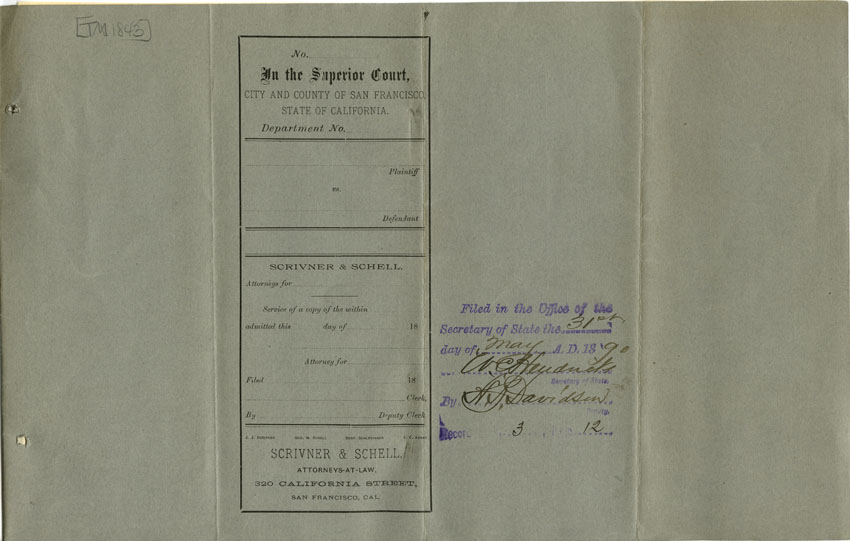 [TM 1843]
No.
In the Superior Court,
CITY AND COUNTY OF SAN FRANCISCO,
STATE OF CALIFORNIA.
Department No.
Plaintiff
vs.
Defendant
SCRIVNER & SCHELL,
Attorneys for
Service of a copy of the within
admitted this day of 18
Attorney for
Filed 18
Clerk,
By Deputy Clerk
SCRIVNER & SCHELL,
ATTORNEYS-AT-LAW,
320 CALIFORNIA STREET,
SAN FRANCISCO, CAL.
Filed in the Office of the
Secretary of State the 31st
day of May A. D. 1890
W C Hendricks
Secretary of State.
By H. Davidson.
Deputy.
Record 3 12